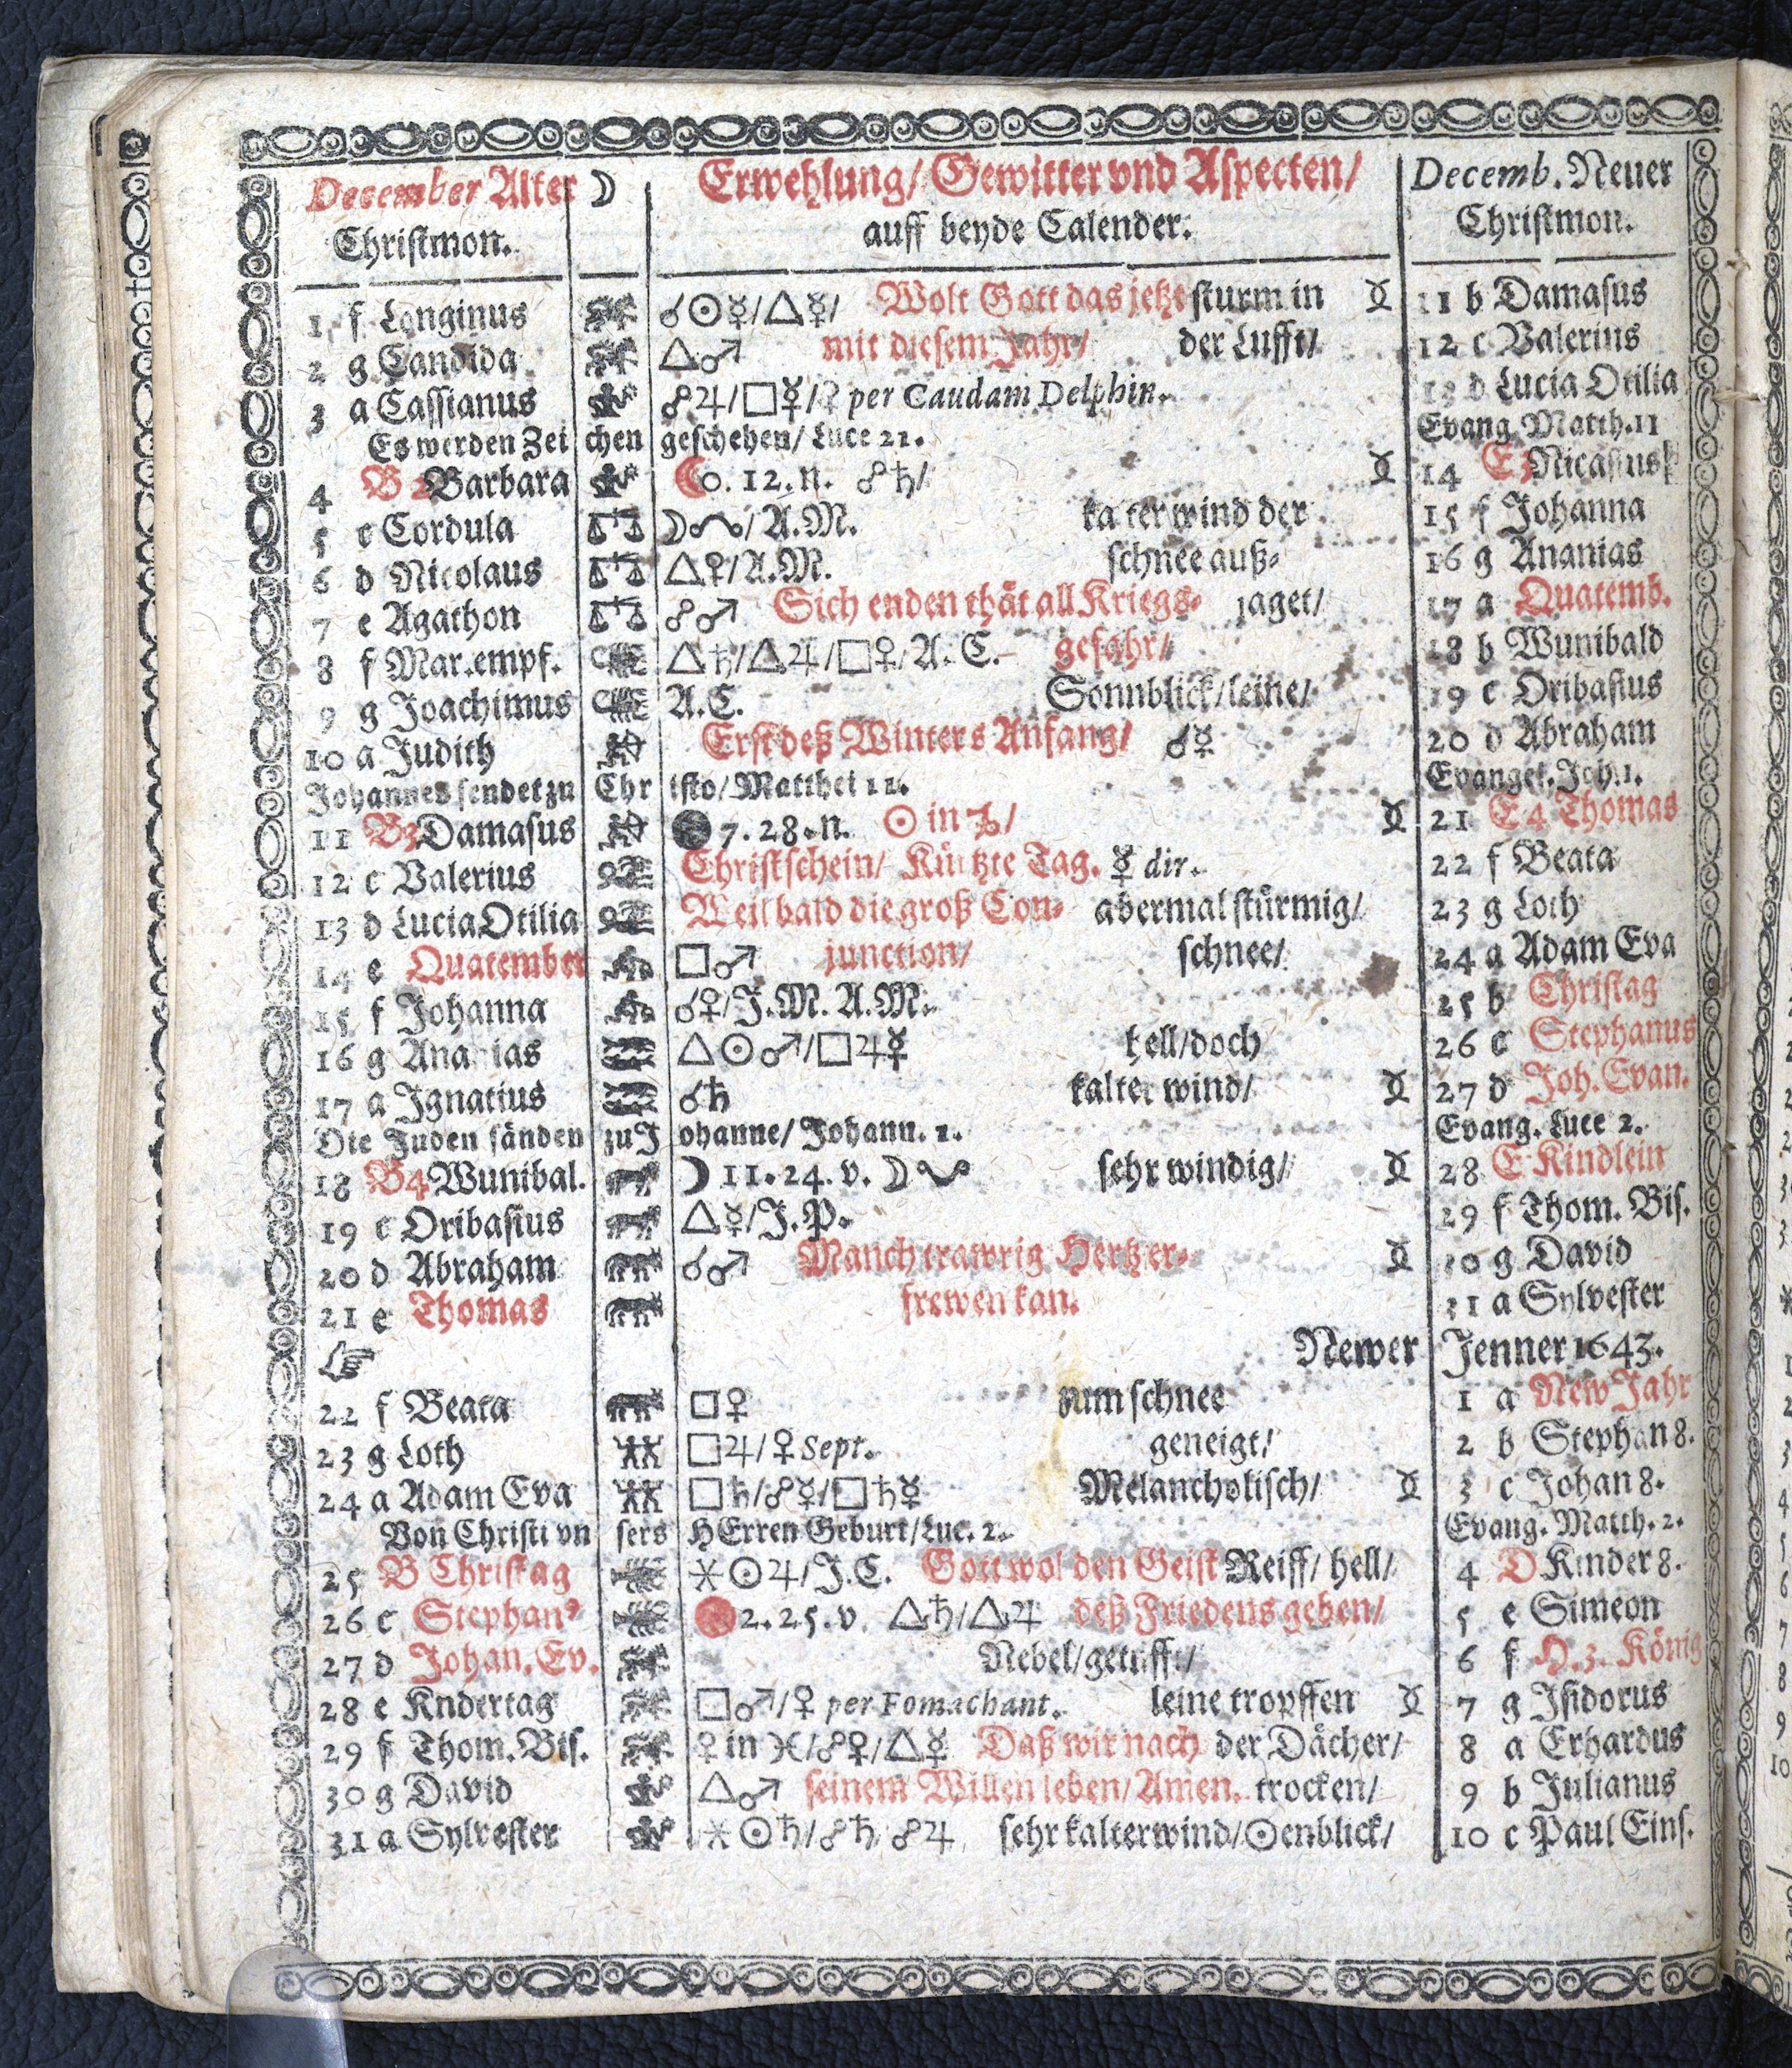 December Alter ☽ Erwehlung/ Gewitter vnd Aspecten/ Decemb. Neuer
Christmon. auff beyde Calender. Christmon.
1 f Longinus ☌☉☿/△☿/ Wolt Gott das jetzt sturm in 11 b Damasus
2 g Candida △♂ mit diesem Jahr/ der Lufft/ 12 c Valerius
3 a Cassianus ☍♃/□☿/♀ per Caudam Delphin. 13 d Lucia Otilia
Es werden Zei chen geschehen/ Luce 21. Evang. Matth. 11
4 B 2 Barbara ☾ 0. 12. n. ☍♄/ 14 E3 Nicasius
5 c Cordula ☽☋/ A. M. kalter wind der 15 f Johanna
6 d Nicolaus △♀/A.M. schnee auß- 16 g Ananias
7 e Agathon ☍♂ Sich enden thät all Kriegs- jaget/ 17 a Quatemb.
8 f Mar. empf. △♄/△♃/□♀/A. C. gefahr/ 18 b Wunibald
9 g Joachimus A.C. Sonnblick/leine/ 19 c Oribasius
10 a Judith Erst deß Winters Anfang/ ☌☿ 20 d Abraham
Johannes sendet zu Chr isto/ Matthei 11. Evangel. Joh. 1.
11 B3 Damasus ● 7. 28. n. ☉ in ♑/ 21 E 4 Thomas
12 c Valerius Christschein/ Kürtzte Tag. ☿ dir. 22 f Beata
13 d Lucia Otilia Weil bald die groß Con- abermal stürmig/ 23 g Loth
14 e Quatember □♂ junction/ schnee/ 24 a Adam Eva
15 f Johanna ☌♀/J. M. A. M. 25 b Christag
16 g Ananias △☉♂/□♃☿ hell/doch 26 c Stephanus
17 a Ignatius ☌♄ kalter wind/ 27 d Joh. Evan.
Die Juden sänden zu J ohanne/ Johann. 1. Evang. Luce 2.
18 B4 Wunibal. ☽ 11. 24. v. ☽☊ sehr windig/ 28 E Kindlein
19 c Oribasius △☿/J. P. 29 f Thom. Bis.
20 d Abraham ☌♂ Manch trawrig Hertz er- 30 g David
21 e Thomas frewen kan. 31 a Sylvester
☞ Newer Jenner 1643.
22 f Beata □♀ zum schnee 1 a New Jahr
23 g Loth □♃/♀ Sept. geneigt/ 2 b Stephan 8.
24 a Adam Eva □♄/☍☿/□♄☿ Melancholisch/ 3 c Johan 8.
Von Christi vn sers HErren Geburt/Luc. 2. Evang. Matth. 2.
25 B Christag ⚹☉♃/J. C. Gott wol den Geist Reiff/ hell/ 4 D Kinder 8.
26 c Stephanꝰ 2. 25. v. △♄/△♃ deß Friedens geben/ 5 e Simeon
27 d Johan. Ev. Nebel/getrifft/ 6 f H. 3. König
28 e Kndertag □♂/♀ per Fomachant. leine tropffen 7 g Isidorus
29 f Thom. Bis. ♀ in ♓/☍♀/△☿ Daß wir nach der Dächer/ 8 a Erhardus
30 g David △♂ seinem Willen leben/ Amen. trocken/ 9 b Julianus
31 a Sylvester ⚹☉♄/☍♄ ☍♃ sehr kalter wind/☉enblick/ 10 c Paul Eins.